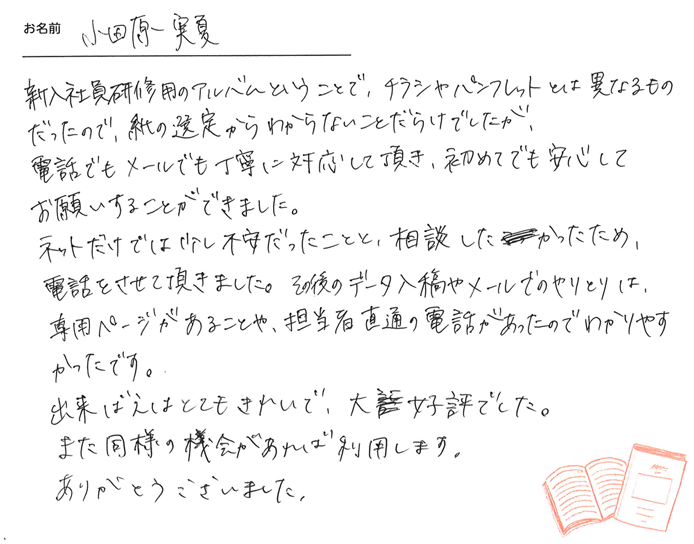 お名前 小田原 実夏
新入社員研修用のアルバムということで、チラシやパンフレットとは異なるもの
だったので、紙の選定からわからないことだらけでしたが、
電話でもメールでも丁寧に対応して頂き、初めてでも安心して
お願いすることができました。
ネットだけでは少し不安だったことと、相談したかったため、
電話をさせて頂きました。その後のデータ入稿やメールでのやりとりは、
専用ページがあることや、担当者直通の電話があったのでわかりやす
かったです。
出来ばえはとてもきれいで、大好評でした。
また同様の機会があれば利用します。
ありがとうございました。